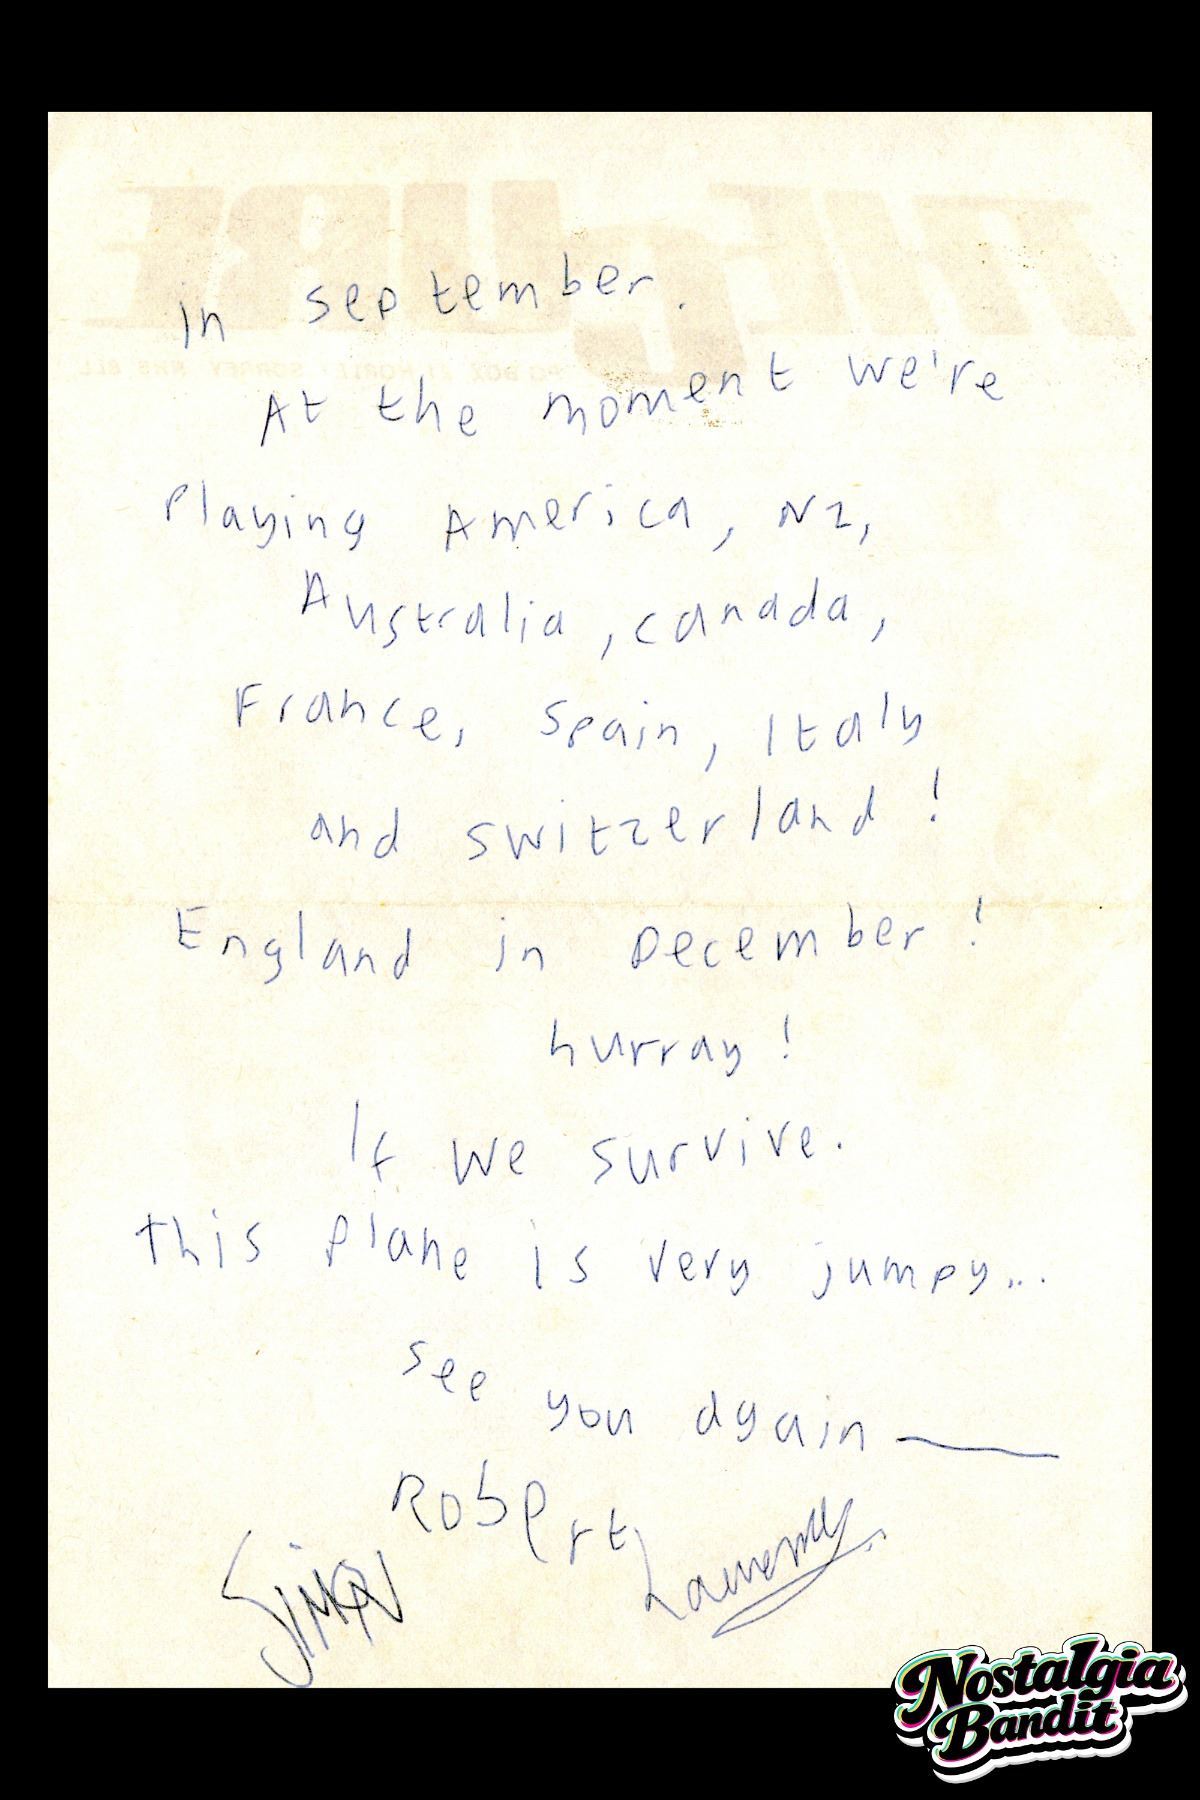 in september.
At the moment we're
playing America, NZ,
Australia, canada,
France, Spain, Italy
and switzerland!
England in December!
hurray!
If we survive.
this plane is very jumpy...
see you again —
Robert
Simon
Laurence
Nostalgia
Bandit